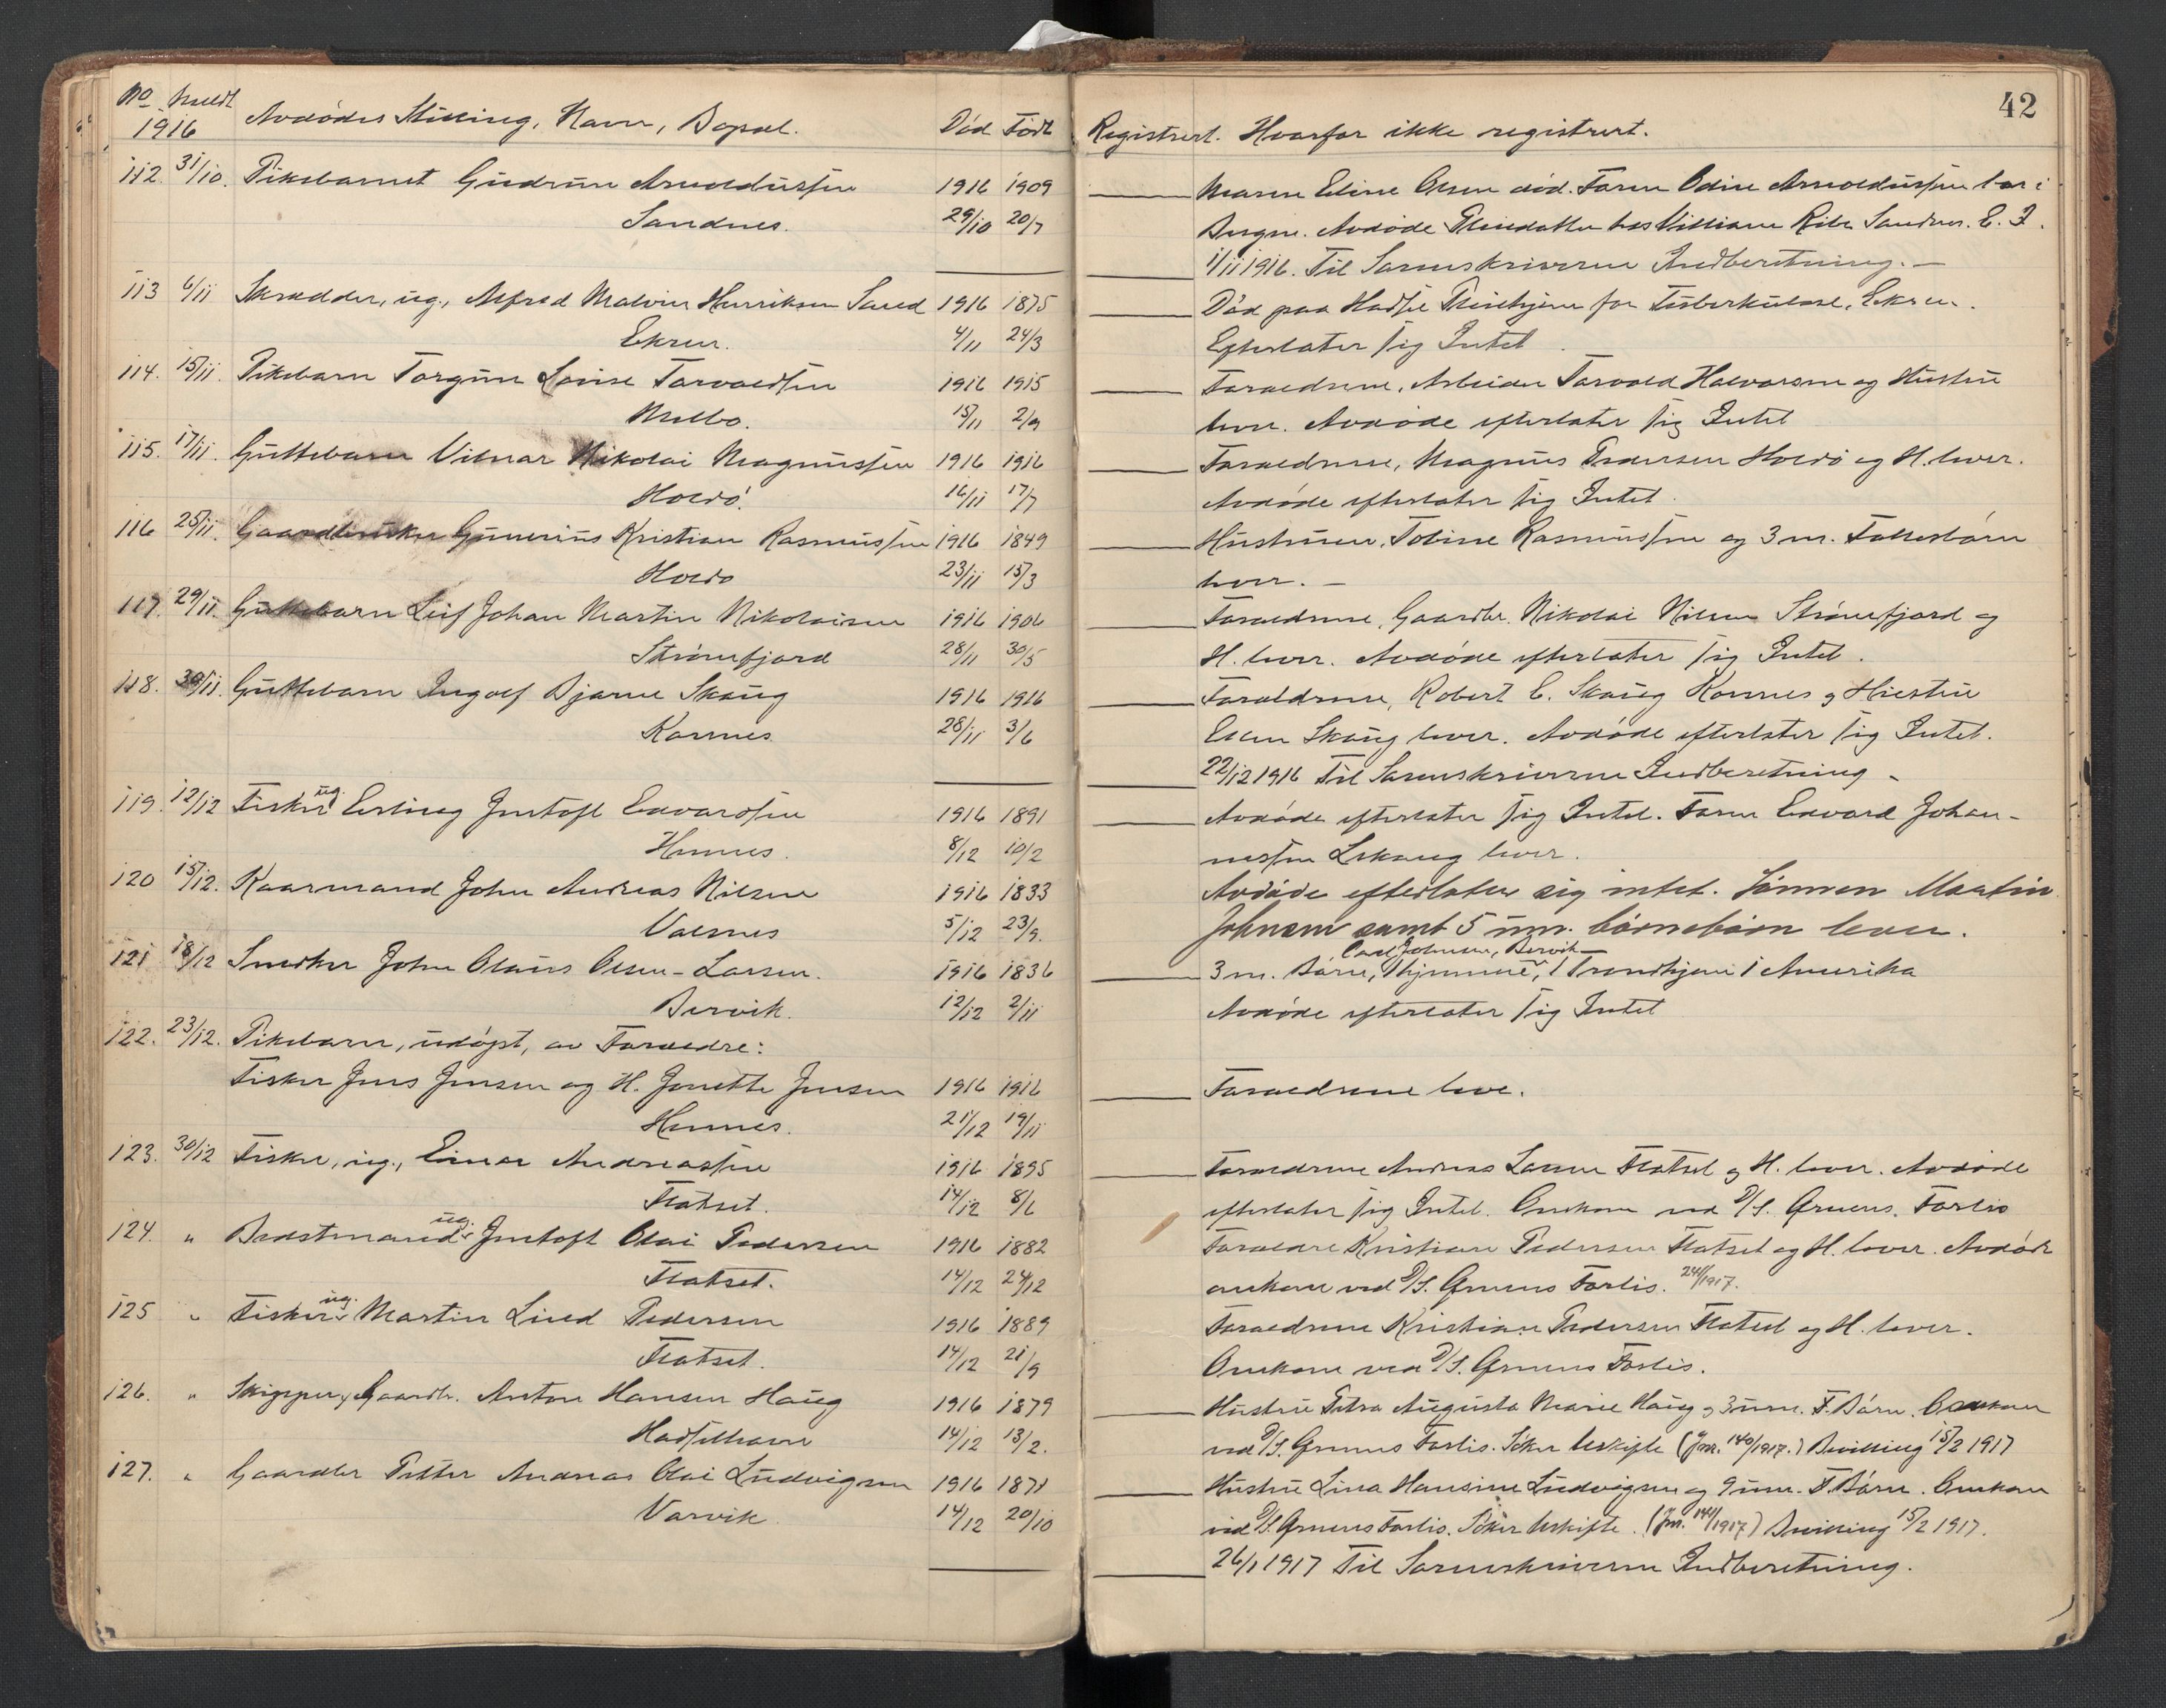 No Meldt Avdødes Stilling, Navn, Bopæl. Død Født
1916
112. 31/10. Pikebarnet Gudrun Arnoldussen 1916 1909
Sandnes. 29/10 20/7
113 6/11 Skrædder, ug., Alfred Malvin Henriksen Sund 1916 1875
Ekren. 4/11 24/3
114. 15/11. Pikebarn Torgun Lovise Torvaldsen 1916 1915
Melbo. 15/11 2/9
115. 17/11. Guttebarn Vilmar Nikolai Magnussen 1916 1916
Holdø. 16/11 17/7
116 25/11. Gaardbruker Gunerius Kristian Rasmussen 1916 1849
Holdø 23/11 15/3
117. 29/11. Guttebarn Leif Johan Martin Nikolaisen 1916 1906
Strømfjord 28/11 30/5
118. 30/11. Guttebarn Ingolf Bjarne Skaug 1916 1916
Kornes 28/11 3/6
119. 12/12 Fisker ug. Erling Jentoft Edvardsen 1916 1891
Hennes. 8/12 10/2
120 15/12. Kaarmand John Andreas Nilsen 1916 1833
Valsnes 5/12 23/9.
121 18/12 Snedker John Olaus Olsen-Larsen. 1916 1836
Bervik. 12/12 2/11
122. 23/12. Pikebarn, udøpt, av Forældre:
Fisker Jens Jensen og H. Jonette Jensen 1916 1916
Hennes. 21/12 19/11
123. 30/12 Fisker, ug., Einar Andreassen 1916 1895
Flatset. 14/12 8/6
124. " Bedstmand ug. Jentoft Olai Pedersen 1916 1882
Flatset. 14/12 24/12
125 " Fisker ug. Martin Lind Pedersen 1916 1889
Flatset. 14/12 21/9
126. " Skipper, Gaardbr. Anton Hansen Haug 1916 1879
Hadselhavn 14/12 13/2.
127. " Gaardbr Petter Andreas Olai Ludvigsen 1916 1871
Varvik 14/12 20/10
42
Registrert. Hvorfor ikke registrert.
Moren Eline Olsen død. Faren Odin Arnoldussen bor i
Bergen. Avdøde Pleiedatter hos Villiam Sandnes. E. I.
1/11 1916. Til Sorenskriveren Indberetning. –
Død paa Hadsel Pleiehjem for Tuberkuløse, Ekren.
Efterlater sig Intet.
Forældrene, Arbeider Torvald Halvorsen og Hustru
lever. Avdøde efterlater sig Intet
Forældrene, Magnus Pedersen Holdø og H. lever.
Avdøde efterlater sig Intet.
Hustruen, Tobine Rasmussen og 3 m. Fællesbørn
lever. –
Forældrene, Gaardbr. Nikolai Nilsen Strømfjord og
H. lever. Avdøde efterlater sig Intet.
Forældrene, Robert E. Skaug Kornes og Hustru
Ellen Skaug lever. Avdøde efterlater sig Intet.
22/12 1916 Til Sorenskriveren Indberetning –
Avdøde efterlater sig Intet. Faren Edvard Johan-
nessen Lekang lever.
Avdøde efterlater sig intet. Sønnen Martin
Johnsen samt 5 um. børnebørn lever.
Carl Johnsen, Bervik
3 m. Børn, 1 hjemme, 1 Trondhjem 1 Amerika
Avdøde efterlater sig Intet
Forældrene leve.
Forældrene Andreas Larsen Flatset og H. lever. Avdøde
efterlater sig Intet. Omkom ved D/S. Ørnens Forlis
Forældre Kristian Pedersen Flatset og H. lever. Avdøde
omkom ved D/S. Ørnens Forlis. 24/1 1917.
Forældrene Kristian Pedersen Flatset og H. lever.
Omkom ved D/S. Ørnens Forlis.
Hustru Petra Augusta Marie Haug og 3 um. F. Børn. Omkom
ved D/S. Ørnens Forlis. Søker Uskifte (Jnr. 140/1917.) Bevilling 15/2 1917
Hustru Lina Hansine Ludvigsen og 9 um. F. Børn. Omkom
ved D/S. Ørnens Forlis. Søker Uskifte. (Jnr. 141/1917) Bevilling 15/2 1917.
26/1 1917 Til Sorenskriveren Indberetning.